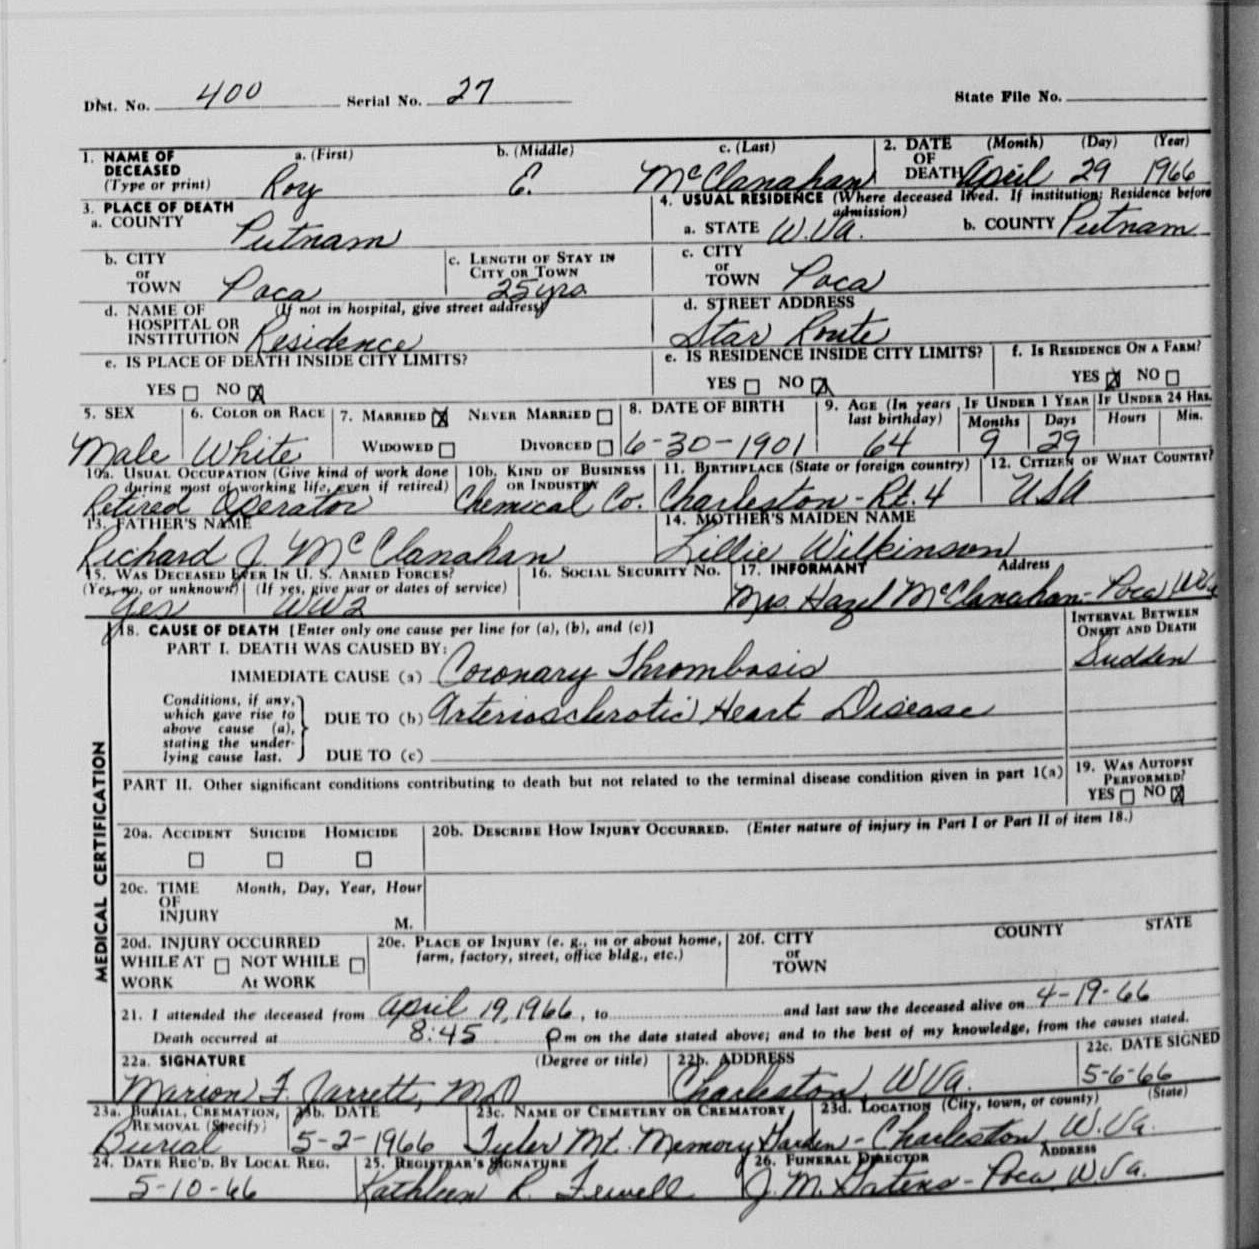 Dist. No. 400 Serial No. 27 State File No.
1. NAME OF DECEASED (Type or print) a. (First) b. (Middle) c. (Last) 2. DATE OF DEATH (Month) (Day) (Year)
Roy E. McClanahan April 29 1966
3. PLACE OF DEATH 4. USUAL RESIDENCE (Where deceased lived. If institution: Residence before admission)
a. COUNTY Putnam a. STATE W.Va. b. COUNTY Putnam
b. CITY or TOWN Poca c. LENGTH OF STAY IN CITY OR TOWN 25 yrs c. CITY or TOWN Poca
d. NAME OF HOSPITAL OR INSTITUTION (If not in hospital, give street address) Residence d. STREET ADDRESS Star Route
e. IS PLACE OF DEATH INSIDE CITY LIMITS? e. IS RESIDENCE INSIDE CITY LIMITS? f. IS RESIDENCE ON A FARM?
YES ☐ NO ☒ YES ☐ NO ☒ YES ☒ NO ☐
5. SEX 6. COLOR OR RACE 7. MARRIED ☒ NEVER MARRIED ☐ 8. DATE OF BIRTH 9. AGE (In years last birthday) IF UNDER 1 YEAR IF UNDER 24 HRS.
WIDOWED ☐ DIVORCED ☐ Months Days Hours Min.
Male White 6-30-1901 64 9 29
10a. USUAL OCCUPATION (Give kind of work done during most of working life, even if retired) 10b. KIND OF BUSINESS OR INDUSTRY 11. BIRTHPLACE (State or foreign country) 12. CITIZEN OF WHAT COUNTRY?
Retired Operator Chemical Co. Charleston - Rt. 4 USA
13. FATHER'S NAME 14. MOTHER'S MAIDEN NAME
Richard J. McClanahan Lillie Wilkinson
15. WAS DECEASED EVER IN U. S. ARMED FORCES? 16. SOCIAL SECURITY NO. 17. INFORMANT Address
(Yes, no, or unknown) (If yes, give war or dates of service)
Yes WW2 Mrs. Hazel McClanahan - Poca, WVa
18. CAUSE OF DEATH [Enter only one cause per line for (a), (b), and (c)] INTERVAL BETWEEN ONSET AND DEATH
PART I. DEATH WAS CAUSED BY:
IMMEDIATE CAUSE (a) Coronary Thrombosis Sudden
Conditions, if any, which gave rise to above cause (a), stating the underlying cause last. DUE TO (b) Arteriosclerotic Heart Disease
DUE TO (c)
PART II. Other significant conditions contributing to death but not related to the terminal disease condition given in part 1(a) 19. WAS AUTOPSY PERFORMED?
YES ☐ NO ☒
20a. ACCIDENT SUICIDE HOMICIDE 20b. DESCRIBE HOW INJURY OCCURRED. (Enter nature of injury in Part I or Part II of item 18.)
☐ ☐ ☐
20c. TIME OF INJURY Month, Day, Year, Hour
M.
20d. INJURY OCCURRED 20e. PLACE OF INJURY (e. g., in or about home, farm, factory, street, office bldg., etc.) 20f. CITY or TOWN COUNTY STATE
WHILE AT WORK ☐ NOT WHILE AT WORK ☐
MEDICAL CERTIFICATION
21. I attended the deceased from April 19, 1966, to and last saw the deceased alive on 4-19-66
Death occurred at 8:45 Pm on the date stated above; and to the best of my knowledge, from the causes stated.
22a. SIGNATURE (Degree or title) 22b. ADDRESS 22c. DATE SIGNED
Marion F. Jarrett, MD Charleston, WVa. 5-6-66
23a. BURIAL, CREMATION, REMOVAL (Specify) 23b. DATE 23c. NAME OF CEMETERY OR CREMATORY 23d. LOCATION (City, town, or county) (State)
Burial 5-2-1966 Tyler Mt. Memory Garden - Charleston, W.Va.
24. DATE REC'D. BY LOCAL REG. 25. REGISTRAR'S SIGNATURE 26. FUNERAL DIRECTOR ADDRESS
5-10-66 Kathleen R. Fewell J. M. Gatens - Poca, W.Va.